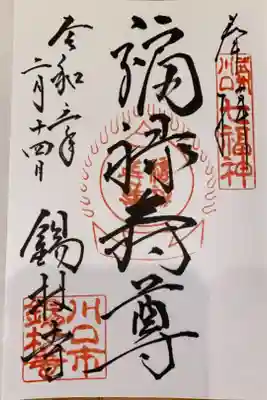 奉拝
武州川口七福神
福禄寿尊
令和三年
二月十四日
錫杖寺
川口市
錫杖寺